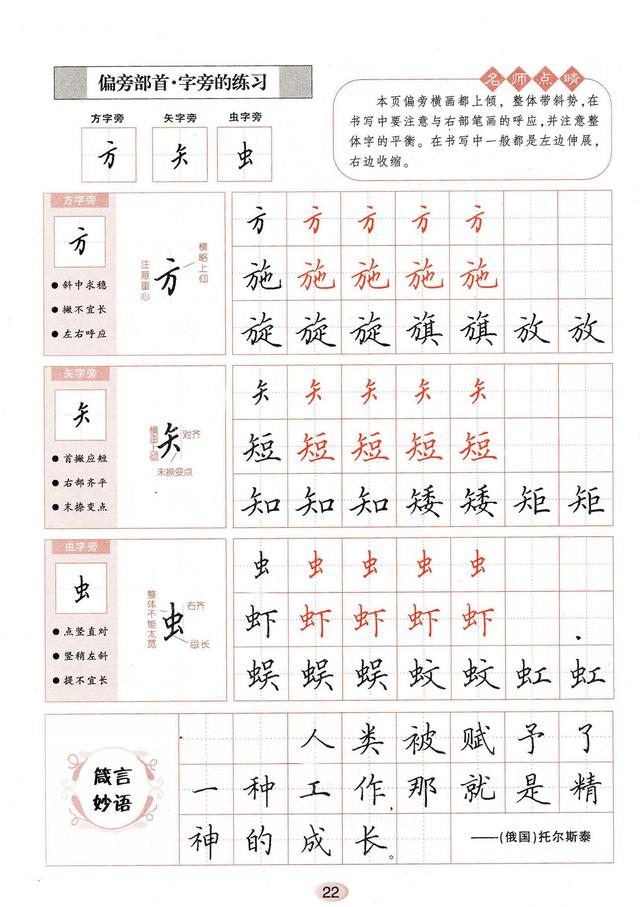 偏旁部首·字旁的练习
名师点睛
本页偏旁横画都上倾，整体带斜势，在
书写中要注意与右部笔画的呼应，并注意整
体字的平衡。在书写中一般都是左边伸展，
右边收缩。
方字旁 矢字旁 虫字旁
方 矢 虫
方字旁
方
斜中求稳
撇不宜长
左右呼应
注意重心
方
横略上仰
方 方 方 方 方
施 施 施 施 施
旋 旋 旋 旗 旗 放 放
矢字旁
矢
首撇应短
右部齐平
末捺变点
横画上倾
矢
对齐
末捺变点
矢 矢 矢 矢 矢
短 短 短 短 短
知 知 知 矮 矮 矩 矩
虫字旁
虫
点竖直对
竖稍左斜
提不宜长
整体不能太宽
虫
右齐
忌长
虫 虫 虫 虫 虫
虾 虾 虾 虾 虾
蜈 蜈 蜈 蚊 蚊 虹 虹
箴言
妙语
人类被赋予了
一种工作,那就是精
神的成长。
——(俄国)托尔斯泰
22